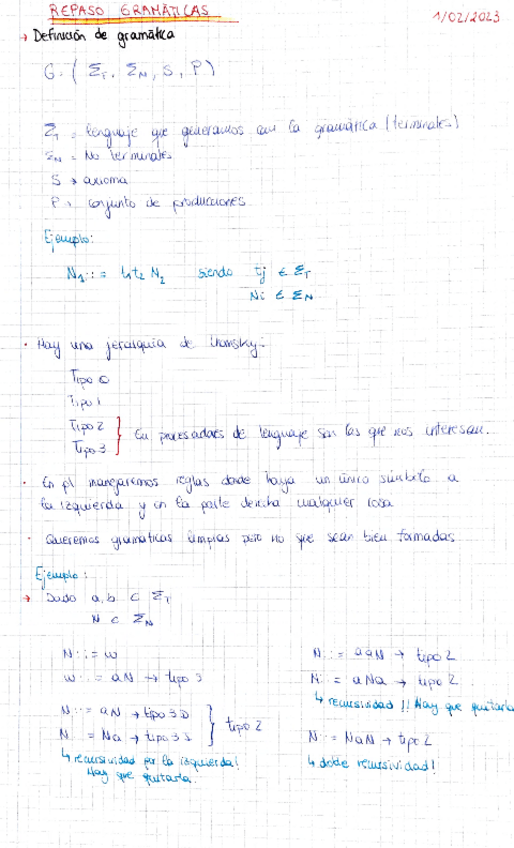 REPASO GRAMÁTICAS
1/02/2023
→ Definición de gramática
G = ( ΣT, ΣN, S, P )
ΣT = lenguaje que generamos con la gramática (terminales)
ΣN = No terminales
S → axioma
P = conjunto de producciones
Ejemplo:
N1 ::= t1 t2 N2 siendo tj ∈ ΣT
Ni ∈ ΣN
· Hay una jerarquía de Chomsky:
Tipo 0
Tipo 1
Tipo 2
Tipo 3
} En procesadores de lenguaje son las que nos interesan.
· En pl manejaremos reglas donde haya un único símbolo a
la izquierda y en la parte derecha cualquier cosa
· Queremos gramáticas limpias pero no que sean bien formadas
Ejemplo:
→ Dado a, b ⊂ ΣT
N ⊂ ΣN
N ::= w
w ::= aN → tipo 3
N ::= aN → tipo 3D
N ::= Na → tipo 3I
} tipo 2
↳ recursividad por la izquierda!
Hay que quitarla.
N ::= aaN → tipo 2
N ::= aNa → tipo 2
↳ recursividad !! Hay que quitarla
N ::= NaN → tipo 2
↳ doble recursividad!